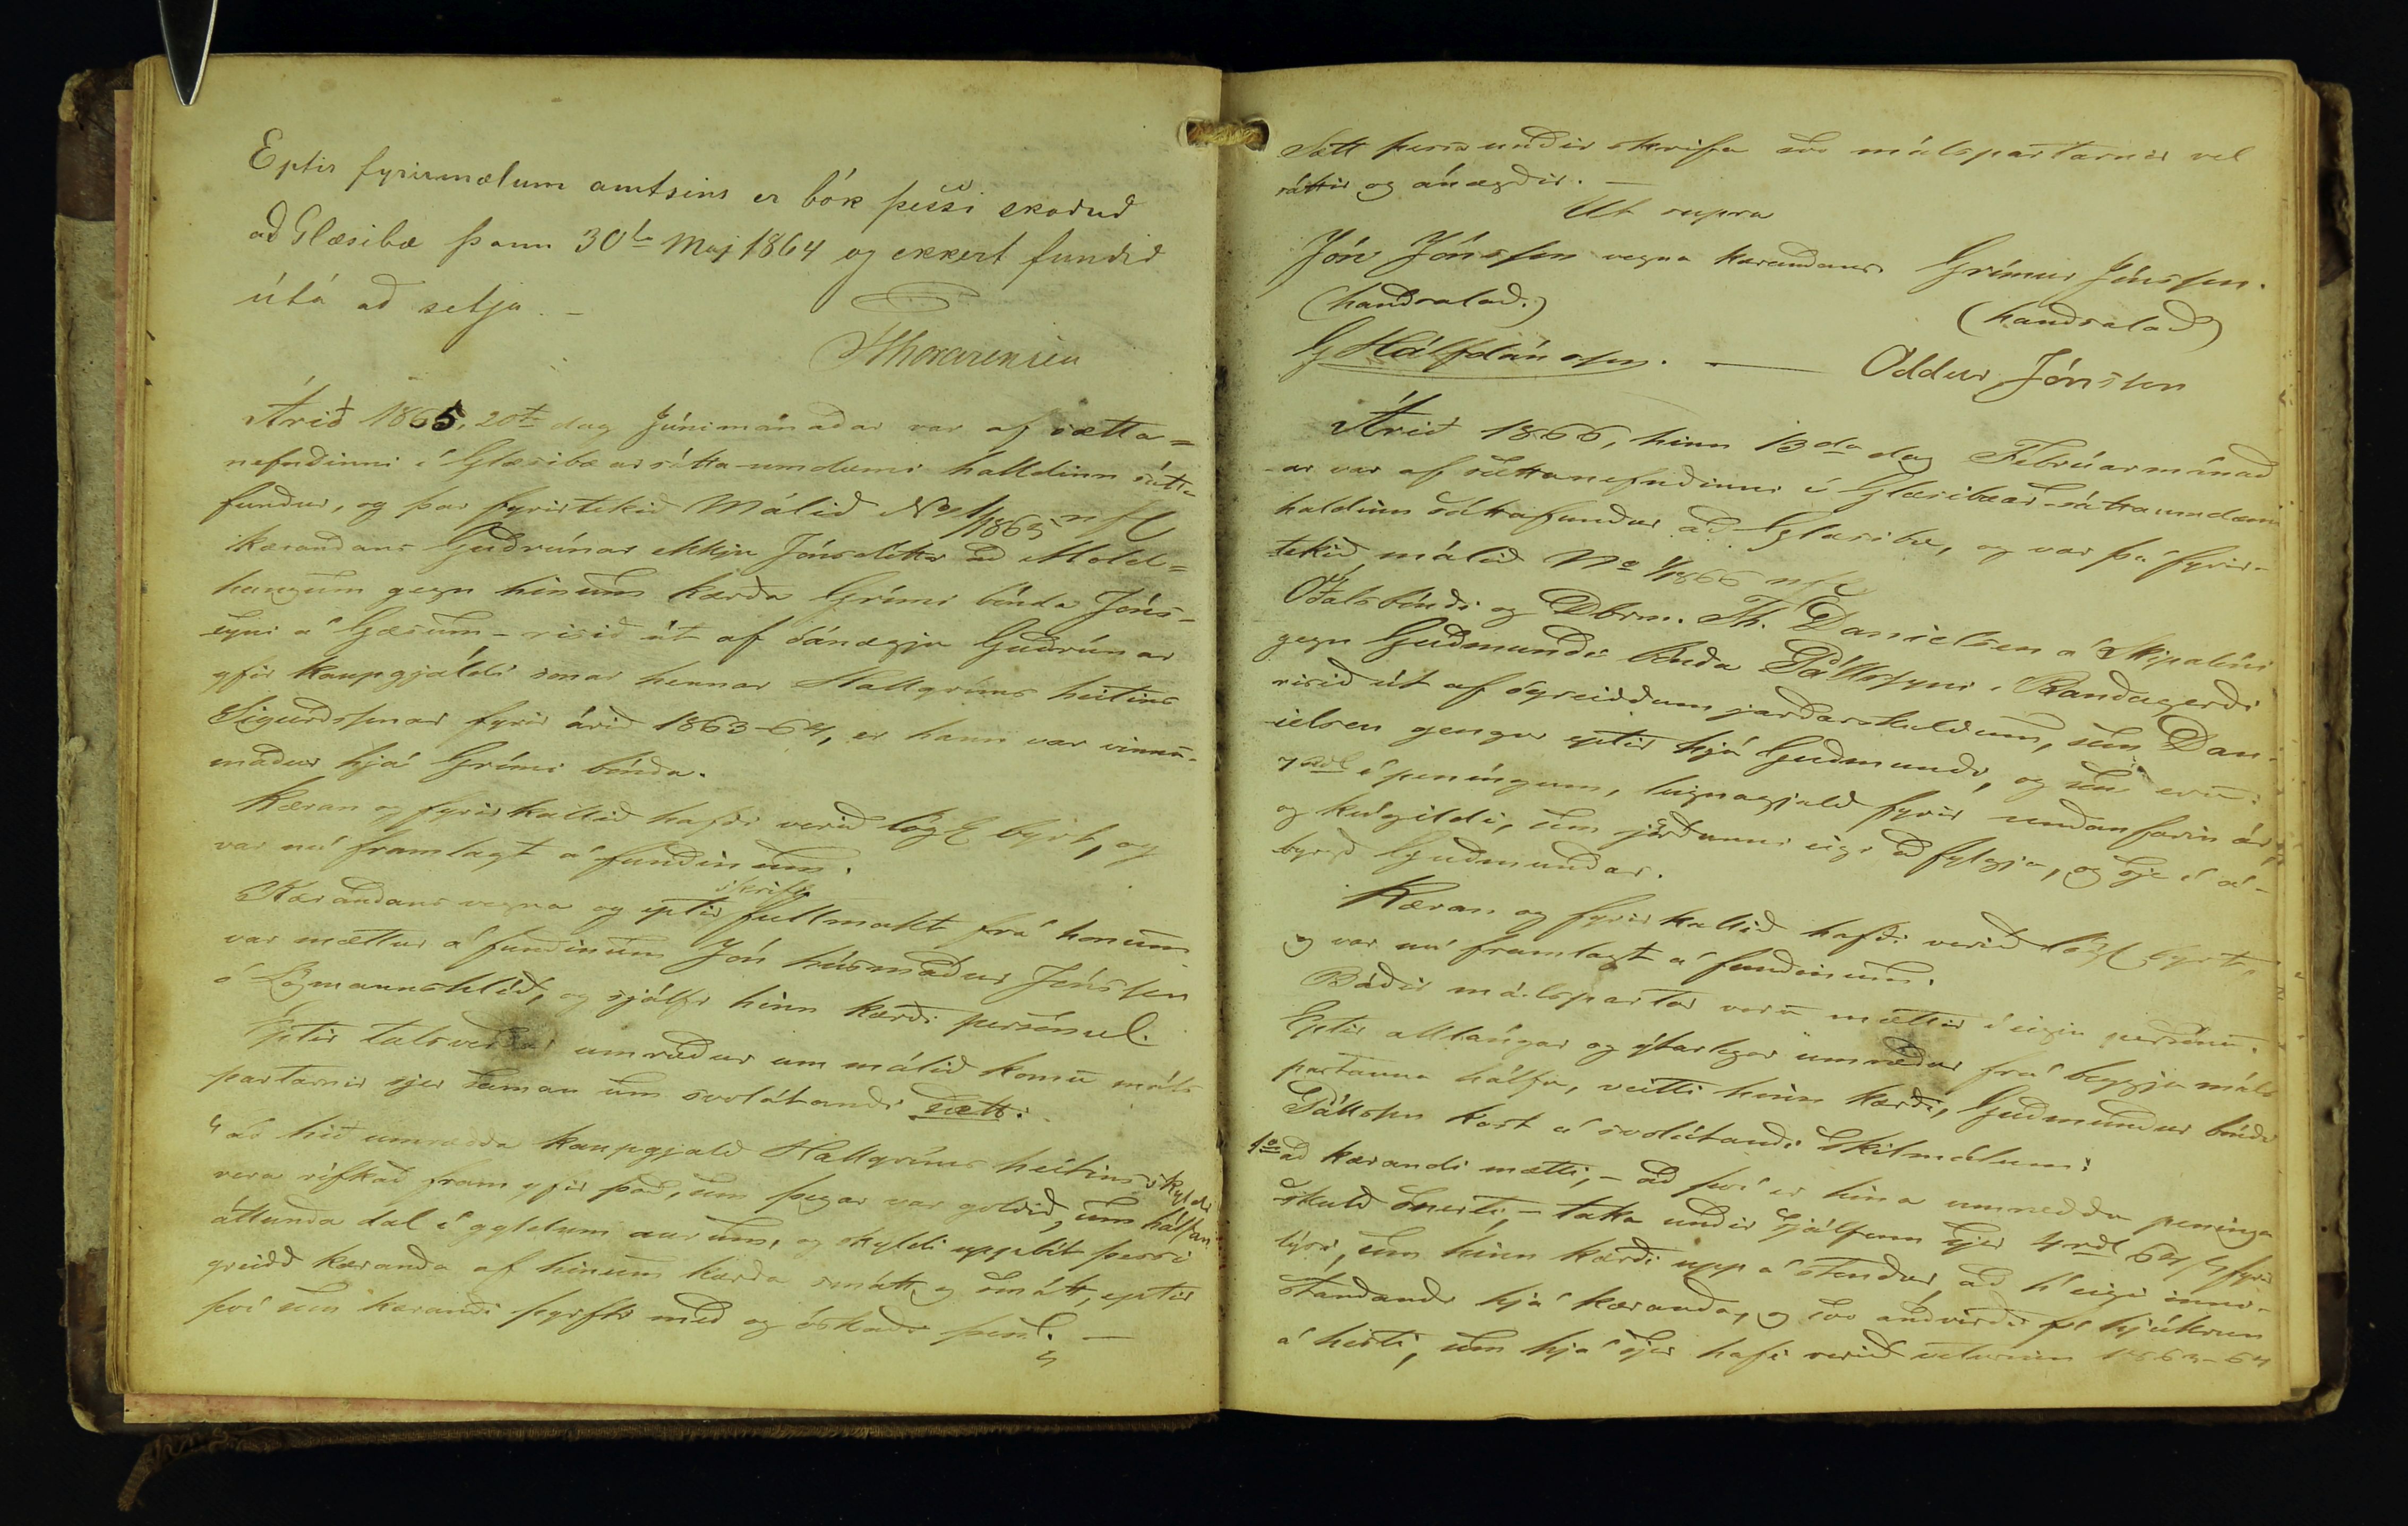 Eptir fyrirmælum amtsins er bók þessi skoðuð
að Glæsibæ þann 30ta Maj 1864 og ekkert fundið
útá að setja. –
SThorarensen
Árið 1865, 20ta dag Júnimánaðar var af sætta=
nefndinni í Glæsibæar sátta-umdæmi halldinn sátta=
fundur, og þar fyrirtekið Málið No 1/1865 nfl
kærandans Guðrúnar ekkju Jónsdóttr að Mold=
haugum gegn hinum kærða Grími bónda Jóns-
syni á Gæsum – risið út af óánægju Guðrúnar
yfir kaupgjaldi sonar hennar Hallgríms heitins
Sigurdssonar fyrir árið 1863–64, er hann var vinnu-
maður hjá Grími bónda.
Kæran og fyrirkallið hafði verið lögl byrt, og
var nú framlagt á fundinum.
Kærandans vegna og eptir skrifl fullmakt frá honum
var mættur á fundinum Jón húsmaður Jónsson
á Lögmannshlíð, og sjálfr hinn kærði persónul.
Eptir talsverðar umræður um málið komu máls
partarnir sjer saman um svolátandi sætt:
"að hið umrædda kaupgjald Hallgríms heitins skyldi
vera rífkað fram yfir það, sem þegar var goldið, um hálfan
áttunda dal í gyldum aurum, og skyldi uppbót þessi
greidd kæranda af hinum kærða smátt og smátt, eptir
því sem kærandi þyrfti með og óskaði þess. –"
Sátt þessa undir skrifa svo málspartarnir vel
sáttir og ánægðir. –
Ut supra
Jón Jónsson vegna kærandans Grímur Jónsson.
(handsalað.) (handsalað)
G Hálfdánsson. — Oddur Jónsson
Árið 1866, hinn 13da dag Febrúarmánað
-ar var af sáttanefndinni í Glæsibæar-sáttaumdæmi
haldinn sáttafundur að Glæsibæ, og var þá fyrir-
tekið málið No 1/1866 nfl
Óðalsbóndi og Dbrm. Th. Danielsen á Skipalóni
gegn Guðmundi bónda Pállssyni í Pandagerði
risið út af ógreiddum jarðarskuldum, sem Dan-
ielsen gengur eptir hjá Guðmundi, og sem eru:
7 rdl í peningum, leignagjald fyrir undanfarin ár,
og kúgildi, sem jörðunni eigi að fylgja, og sje í á-
byrgð Guðmundar.
Kæran og fyrirkallið hafði verið lögl byrt,
og var nú framlagt á fundinum.
Báðir málspartar voru mættir í eigin persónu.
Eptir alllángar og ýtarlegar umræður frá beggja máls
partanna hálfu, veitti hinn kærði, Guðmundur bóndi
Pállsson kost á svolátandi skilmálum:
1o að kærandi mætti, – að því er hina umræddu peninga
skuld snerti, – taka undir sjálfum sjer 4 rdl 64 s fyrir
lýsi, sem hinn kærði upp á stendur, að sé eigi inni-
standandi hjá kæranda, og svo andvirði fé hjúkrun
á hesti, sem hjá sjer hafi verið veturinn 1863–64